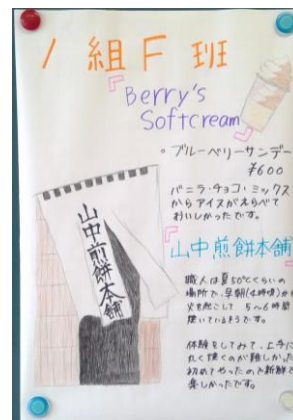 1組F班
『Berry's
Softcream』
。ブルーベリーサンデー
¥600
バニラ・チョコ・ミックス
からアイスがえらべて
おいしかったです。
『山中煎餅本舗
山中煎餅本舗
職人は夏50℃くらいの
場所で、早朝(4時頃)から
火を起こして 5〜6時間
焼いているそうです。
体験をしてみて、上手に
丸く焼くのが難しかった
初めてやったので新鮮で
楽しかったです。